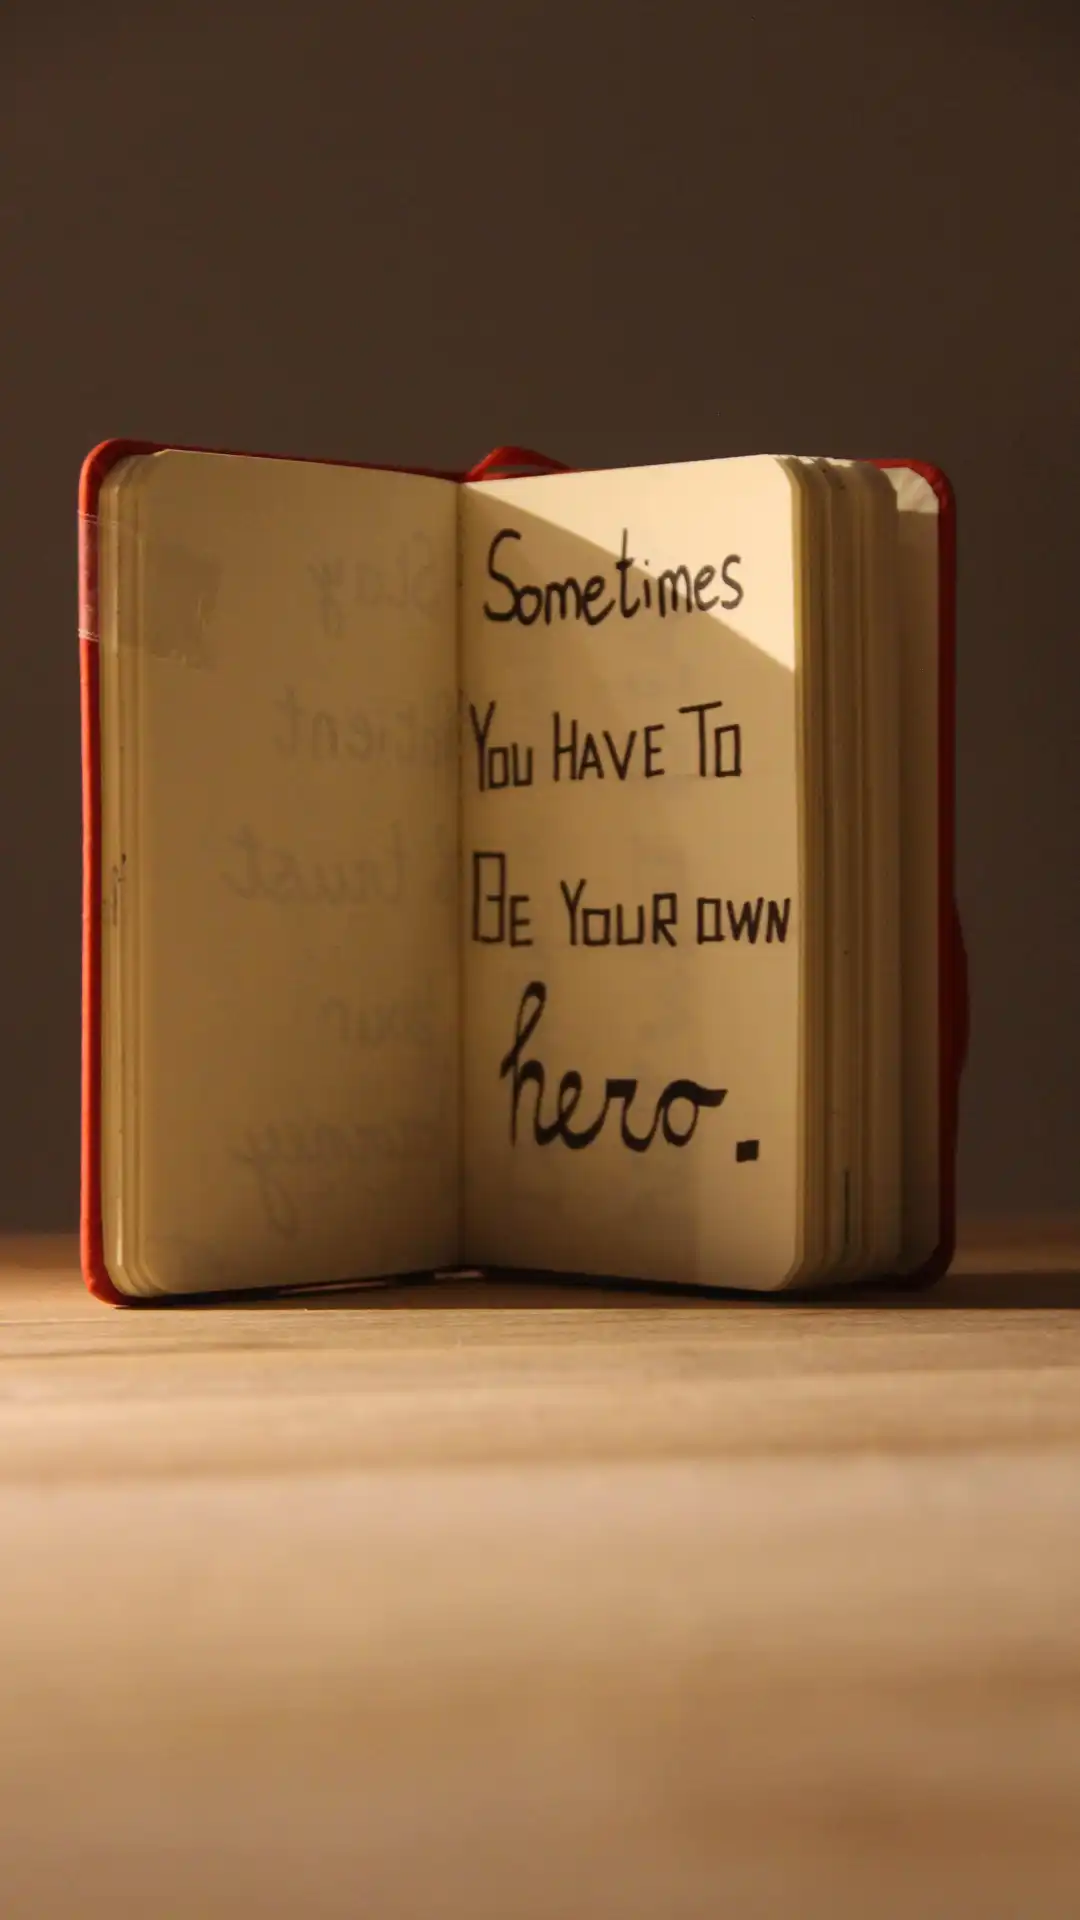 Sometimes
You HAVE To
BE YouR OWN
hero.